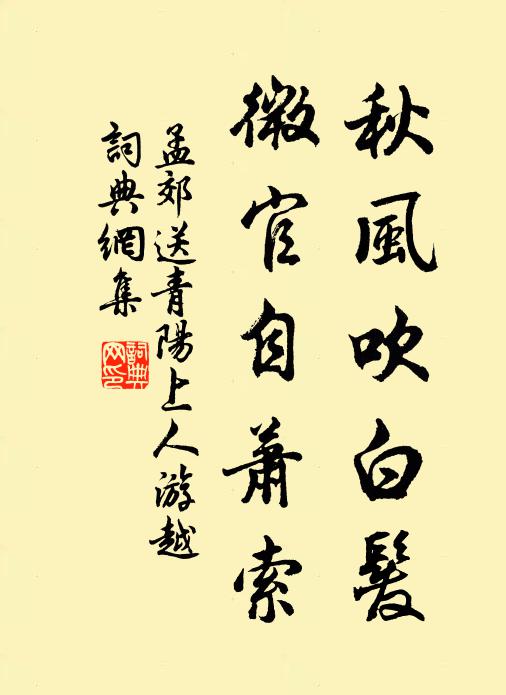 秋風吹白髮
微官自蕭索
孟郊送青陽上人游越
詞典網集
詞典網印